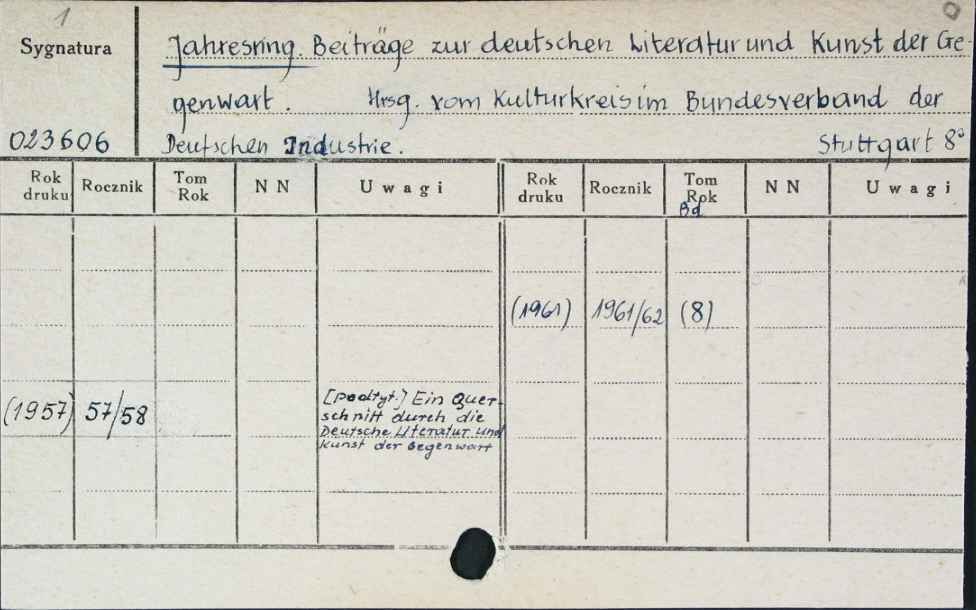 1
Sygnatura
Jahresring. Beiträge zur deutschen Literatur und Kunst der Ge-
genwart. Hrsg. vom Kulturkreis im Bundesverband der
023606 Deutschen Industrie. Stuttgart 8°
Rok druku Rocznik Tom Rok N N Uwagi Rok druku Rocznik Tom Rok Bd N N Uwagi
(1961) 1961/62 (8)
(1957) 57/58 [podtyt.] Ein Quer-
schnitt durch die
Deutsche Literatur und
Kunst der Gegenwart